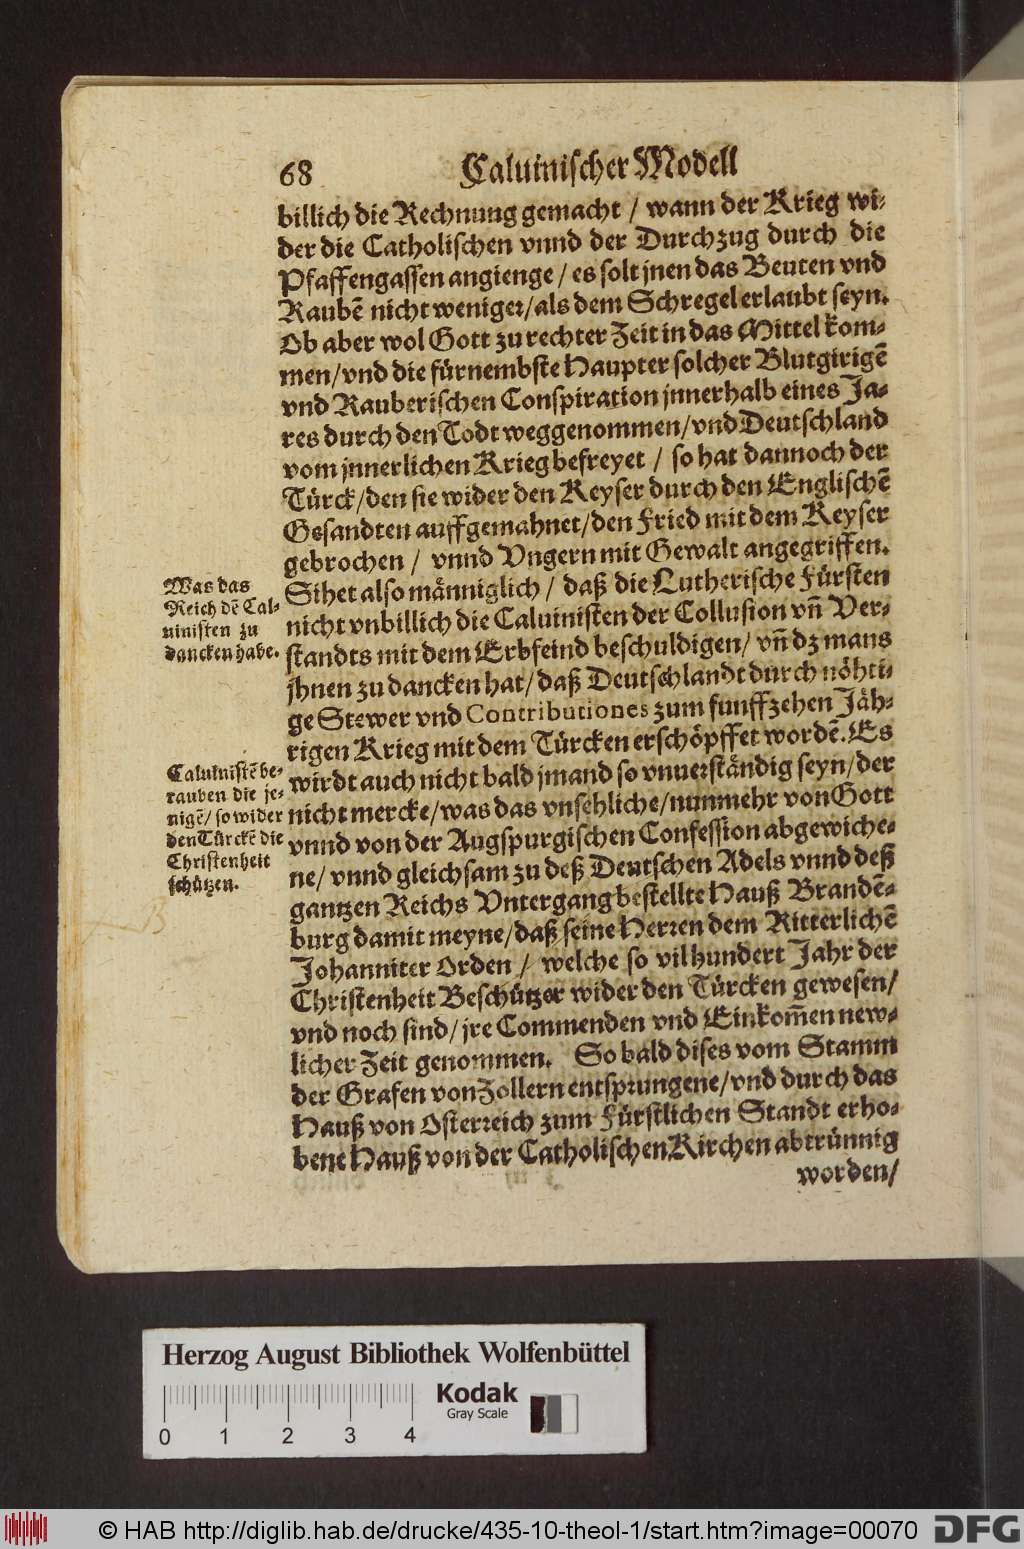 68 Caluinischer Modell
billich die Rechnung gemacht / wann der Krieg wi-
der die Catholischen vnnd der Durchzug durch die
Pfaffengassen angienge / es solt jnen das Beuten vnd
Raubē nicht weniger / als dem Schregel erlaubt seyn.
Ob aber wol Gott zu rechter Zeit in das Mittel kom-
men / vnd die fürnembste Haupter solcher Blutgirigē
vnd Rauberischen Conspiration jnnerhalb eines Ja-
res durch den Todt weggenommen / vnd Deutschland
vom jnnerlichen Krieg befreyet / so hat dannoch der
Türck / den sie wider den Keyser durch den Englischē
Gesandten auffgemahnet / den Fried mit dem Keyser
gebrochen / vnnd Vngern mit Gewalt angegriffen.
Sihet also männiglich / daß die Lutherische Fürsten
nicht vnbillich die Caluinisten der Collusion vn̄ Ver-
standts mit dem Erbfeind beschuldigen / vn̄ dz mans
jhnen zu dancken hat / daß Deutschlandt durch nöhti-
ge Stewer vnd Contributiones zum funffzehen Jäh-
rigen Krieg mit dem Türcken erschöpffet wordē. Es
wirdt auch nicht bald jmand so vnuerständig seyn / der
nicht mercke / was das vnsehliche / nunmehr von Gott
vnnd von der Augspurgischen Confession abgewiche-
ne / vnnd gleichsam zu deß Deutschen Adels vnnd deß
gantzen Reichs Vntergang bestellte Hauß Brandē-
burg damit meyne / daß seine Herren dem Ritterlichē
Johanniter Orden / welche so vil hundert Jahr der
Christenheit Beschützer wider den Türcken gewesen /
vnd noch sind / jre Commenden vnd Einkom̄en new-
licher Zeit genommen. So bald dises vom Stamm
der Grafen von Zollern entsprungene / vnd durch das
Hauß von Osterreich zum Fürstlichen Standt erho-
bene Hauß von der Catholischen Kirchen abtrünnig
worden /
Was das
Reich dē Cal-
uinisten zu
dancken habe.
Caluinistē be-
rauben die je-
nigē / so wider
den Türckē die
Christenheit
schützen.
Herzog August Bibliothek Wolfenbüttel
Kodak
Gray Scale
0 1 2 3 4
© HAB http://diglib.hab.de/drucke/435-10-theol-1/start.htm?image=00070
DFG